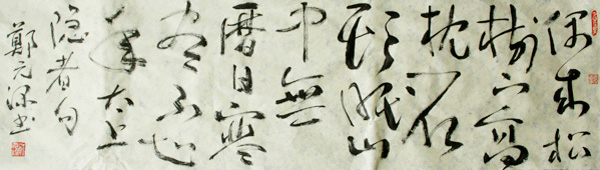 偶来松
樹下高
枕石
頭眠山
中無
曆日寒
盡不知
年太上
隐者句
鄭元书